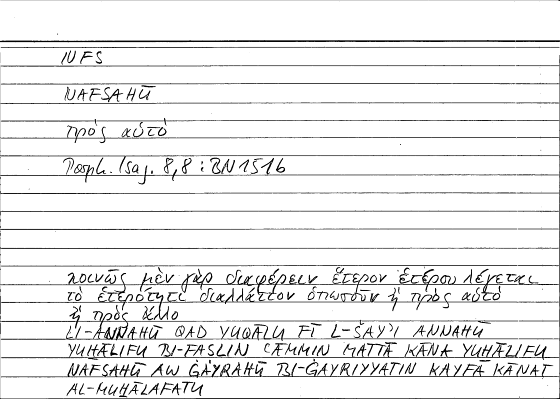 NFS
NAFSAHŪ
πρὸς αὑτό
Porph. Isag. 8,8 : BN 151b
κοινῶς μὲν γὰρ διαφέρειν ἕτερον ἑτέρου λέγεται
τὸ ἑτερότητι διαλλάττον ὁπωσοῦν ἢ πρὸς αὑτὸ
ἢ πρὸς ἄλλο
LI-ANNAHŪ QAD YUQĀLU FĪ L-ŠAY'I ANNAHŪ
YUḪĀLIFU BI-FAṢLIN ʿĀMMIN MATTĀ KĀNA YUḪĀLIFU
NAFSAHŪ AW ĠAYRAHŪ BI-ĠAYRIYYATIN KAYFĀ KĀNAT
AL-MUḪĀLAFATU